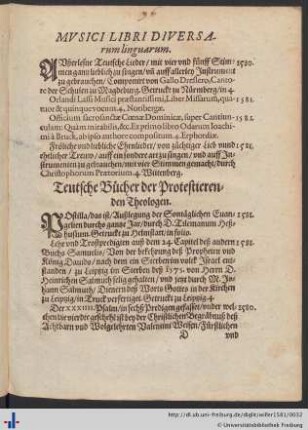 MVSICI LIBRI DIVERSA-
rum linguarum.
Außerlesne Teutsche Lieder / mit vier vnd fünff Stim- 1580.
men gantz lieblich zu singen / vñ auff allerley Instrument
zu gebrauchen / Componirt von Gallo Dreslero, Canto-
re der Schulen zu Magdeburg. Getruckt zu Nürmberg / in 4.
Orlandi Lassi Musici præstantissimi, Liber Missarum, qua- 1581.
tuor & quinque vocum. 4. Noribergæ.
Officium sacrosanctæ Cœnæ Dominicæ, super Cantiun- 1581.
culam: Quàm mirabilis, &c. Ex primo libro Odarum Ioachi-
mi à Bruck, ab ipso authore compositum. 4. Erphordiæ.
Fröliche vnd liebliche Ehrnlieder / von züchtiger Lieb vnnd 1581.
ehrlicher Trewe / auff ein sonder art zu singen / vnd auff In-
strumenten zu gebrauchen / mit vier Stimmen gemacht / durch
Christophorum Prætorium. 4. Witenberg.
Teutsche Bücher der Protestieren-
den Theologen.
POstilla / das ist / Außlegung der Sontäglichen Euan- 1581.
gelien durchs gantze Jar / durch D. Tilemanum Heß-
husium. Getruckt zu Helmstatt / in folio.
Lehr vnd Trostpredigten auß dem 24. Capitel deß andern 1581.
Buchs Samuelis / Von der bekehrung deß Propheten vnd
Königs Dauids / nach dem ein Sterben im volck Israel ent-
standen / zu Leipzig im Sterben deß 1575. von Herrn D.
Heinrichen Salmuth selig gehalten / vnd jetzt durch M. Jo-
hann Salmuth / Dienern deß Worts Gottes in der Kirchen
zu Leipzig / in Truck verfertiget. Getruckt zu Leipzig. 4.
Der XXXIIII. Psalm / in sechs Predigten gefasset / vnder wel- 1580.
chen die vierdte geschehe ist bey der Christlichen Begräbnuß deß
Achtbarn vnd Wolgelehrten Valentini Weisen / Fürstlichen
D vnd
http://dl.ub.uni-freiburg.de/diglit/willer1581/0032
© Universitätsbibliothek Freiburg